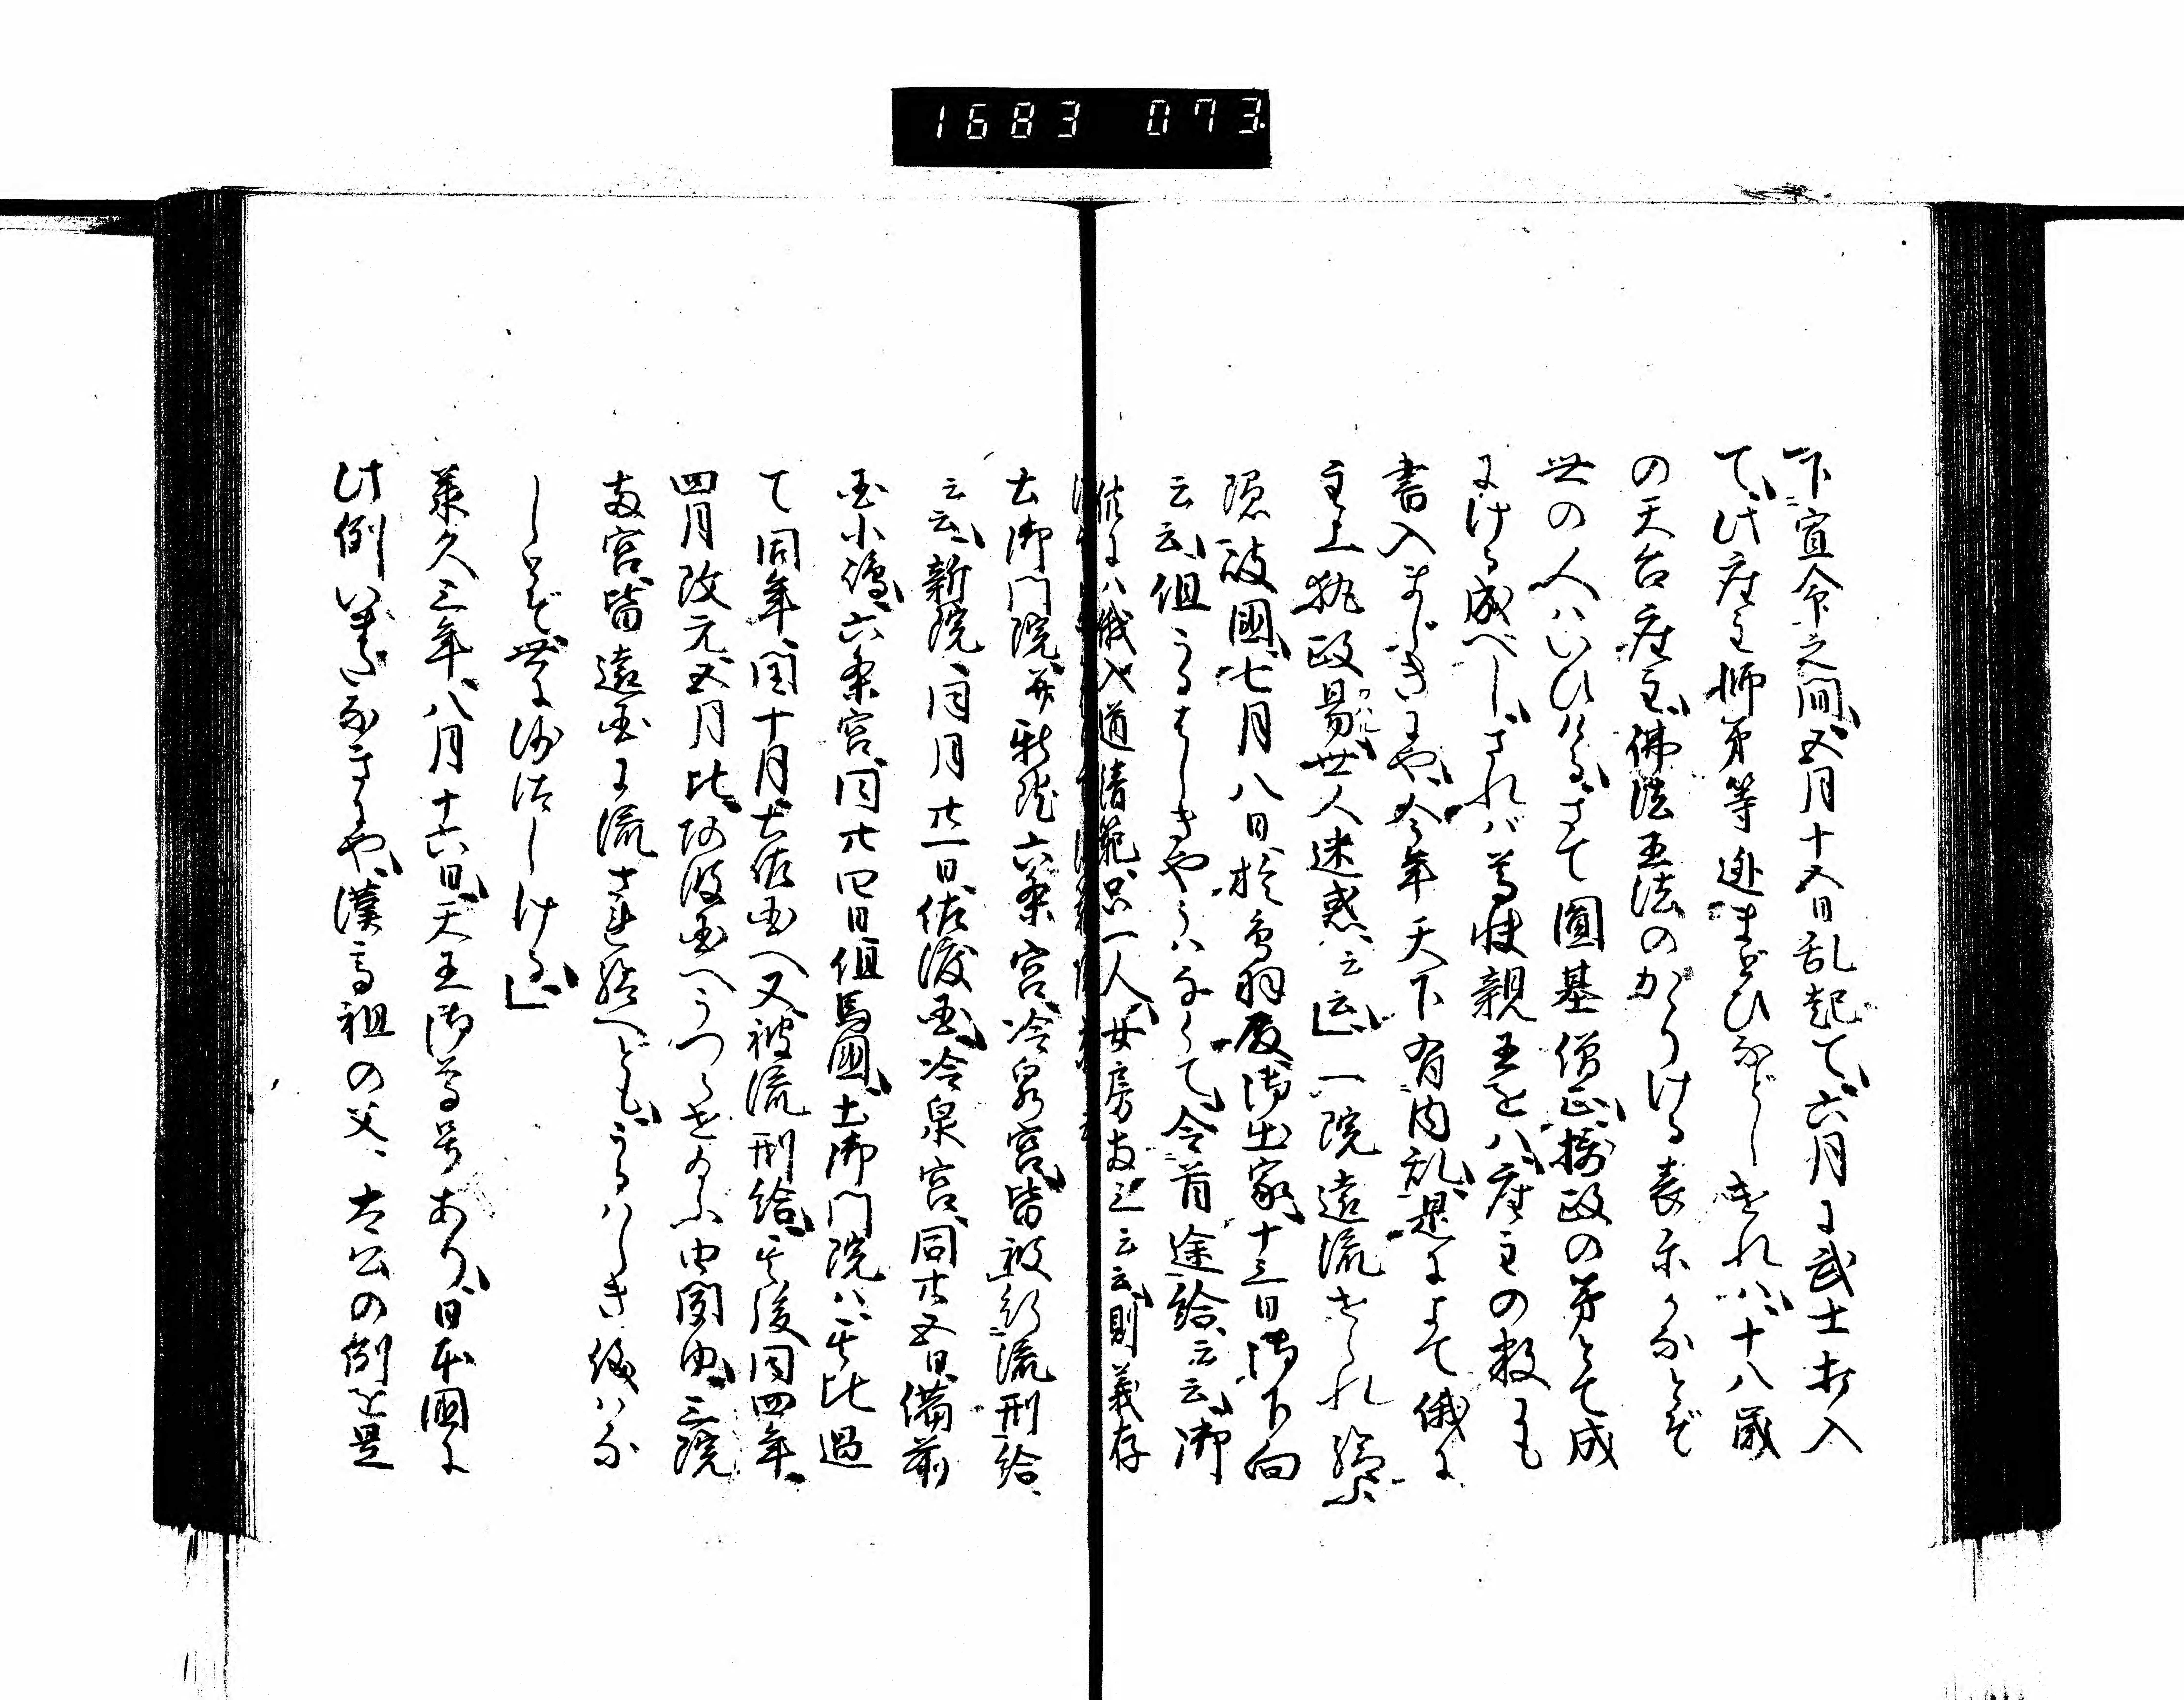 1683 073
下宣命之間、五月十五日乱起て、六月ニ武士打入
て、此座主師弟等迯まどひなどしければ、十八歳
の天台座主、佛法王法のかゝりける表示かなとぞ
世の人ハいひける、さて圓基僧正、摂政の弟とて成
にける成べし、されバ尊快親王をハ座主の数にも
書入まじきにや、今年天下有内乱、是によて俄ニ
主上執政易、世人迷惑云云、」一院遠流せられ給ふ
隠岐國、七月八日、於鳥羽殿御出家、十三日御下向
云云、但うるはしきやうハなくて、令首途給云云、御
供ニハ俄入道清範只一人、女房両三云云、則義存
土御門院并新院六条宮、冷泉宮、皆被行流刑給、
云云、新院、同月廿一日、佐渡国、冷泉宮、同廿五日、備前
国小嶋、六条宮、同廿四日、但馬國、土御門院ハ、其比過
て同年閏十月、土佐国へ又被流刑給、其後同四年、
四月改元、五月比、阿波国へうつらせ給ふ由聞ゆ、三院
両宮皆遠国に流され給へども、うるハしき儀ハな
しとぞ世に沙汰しける」
承久三年、八月十六日、天王御尊号あり、日本國に
此例いまだなきにや、漢高祖の父、太公の例を是